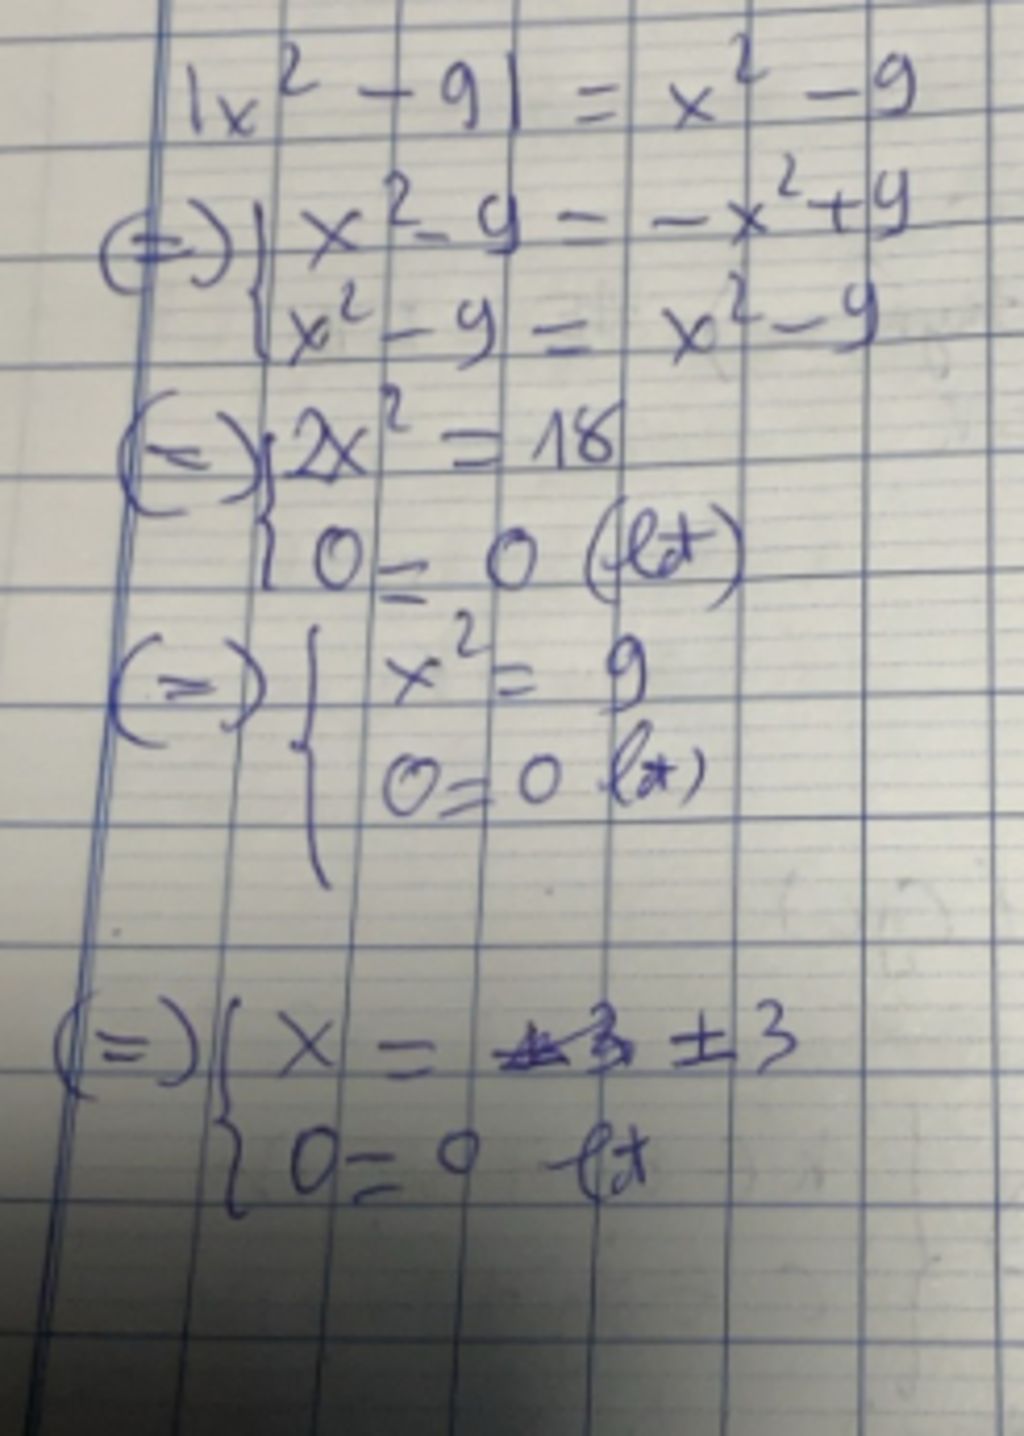 |x² - 9| = x² - 9
(=) { x² - 9 = -x² + 9
x² - 9 = x² - 9
(=) { 2x² = 18
0 = 0 (lđ)
(=) { x² = 9
0 = 0 lđ)
(=) { x = ± 3
0 = 0 lđ